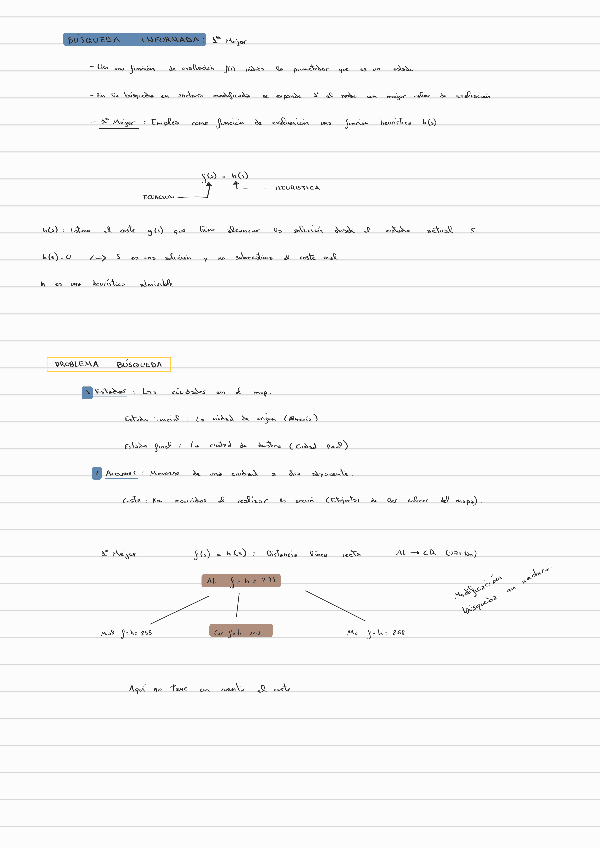 BUSQUEDA INFORMADA: 1º Mejor
- Usa una función de evaluación f(s) lo prometedor que es un estado
- En la búsqueda en anchura modificada se expande el nodo con mejor valor de evaluación
- 1º Mejor : Emplea como función de evaluación una función heurística h(s)
f(s) = h(s)
HEURISTICA
h(s) : estima el coste g(s) que tiene alcanzar la solución desde el estado actual s
h(s)=0 <=> S es una solución y no el coste real
h es una heurística admisible
PROBLEMA BÚSQUEDA
Estados : Las ciudades en el mapa.
Estado inicial : La ciudad de origen (Almería)
Estado final : La ciudad de destino (Ciudad Real)
Acciones : Moverse de una ciudad a otra adyacente.
Coste : Km recorridos al realizar la acción (Etiquetas de las del mapa).
1º Mejor f(s) = h(s) : Distancia línea recta AL → CR
Modificación
búsqueda en anchura
AL f=h=
f=h= Ma f=h= 260
Aquí no tiene en cuenta el coste